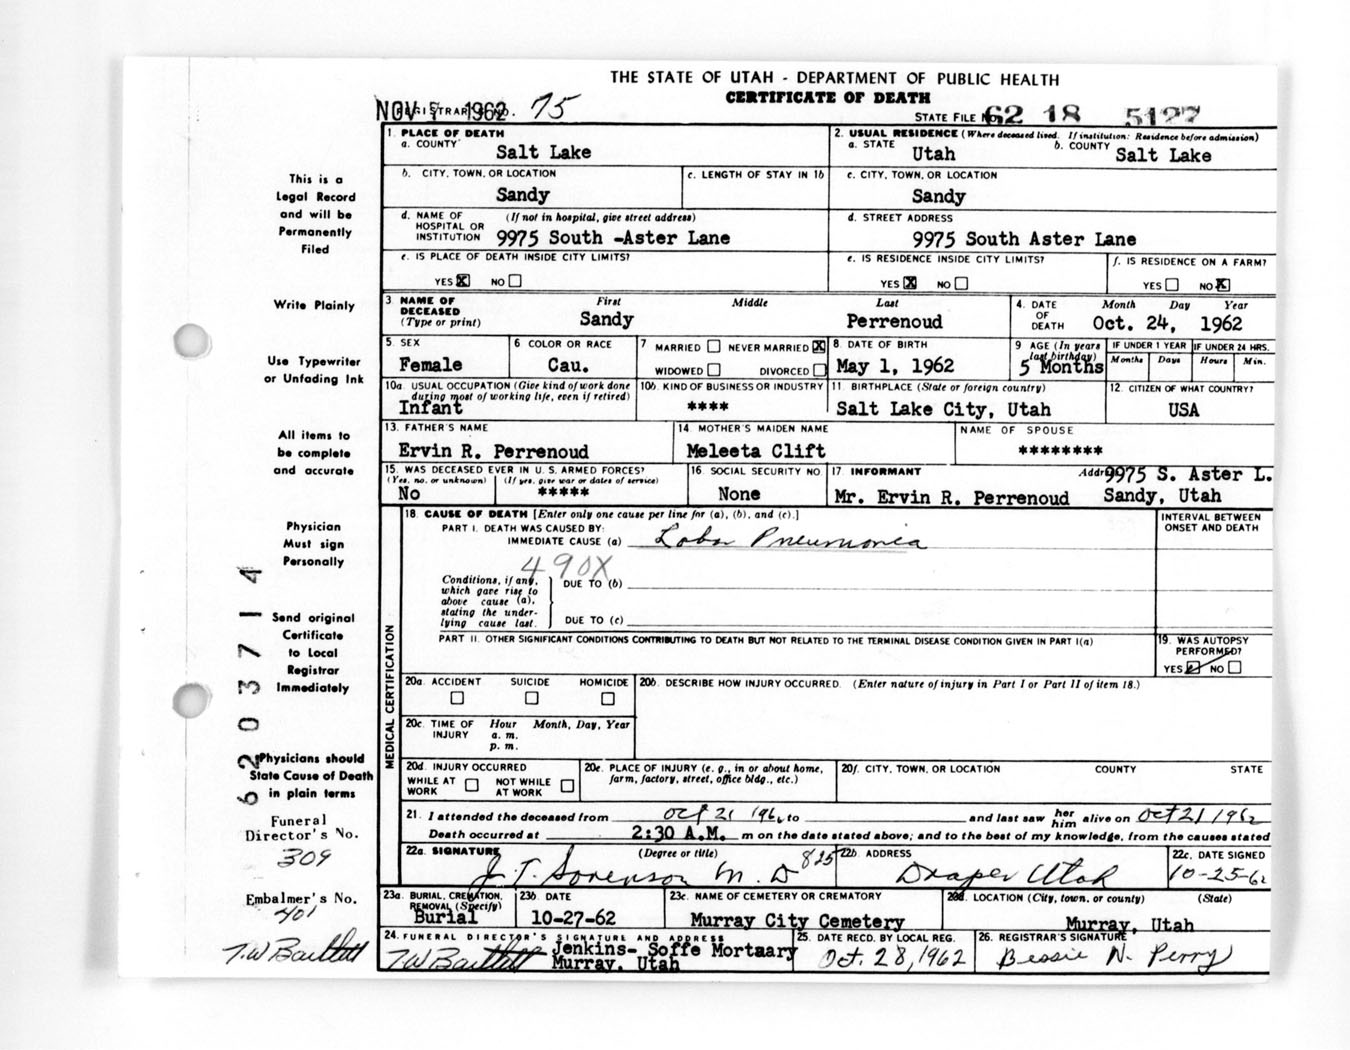 THE STATE OF UTAH - DEPARTMENT OF PUBLIC HEALTH
CERTIFICATE OF DEATH
NOV 1962 REGISTRAR'S NO. 75
STATE FILE 62 18 5127
1. PLACE OF DEATH
a. COUNTY Salt Lake
2. USUAL RESIDENCE (Where deceased lived. If institution: Residence before admission)
a. STATE Utah b. COUNTY Salt Lake
b. CITY, TOWN, OR LOCATION Sandy
c. LENGTH OF STAY IN 1b
c. CITY, TOWN, OR LOCATION Sandy
d. NAME OF HOSPITAL OR INSTITUTION (If not in hospital, give street address) 9975 South -Aster Lane
d. STREET ADDRESS 9975 South Aster Lane
e. IS PLACE OF DEATH INSIDE CITY LIMITS? YES X NO
e. IS RESIDENCE INSIDE CITY LIMITS? YES X NO
f. IS RESIDENCE ON A FARM? YES NO X
3. NAME OF DECEASED (Type or print) First Sandy Middle Last Perrenoud
4. DATE OF DEATH Month Day Year Oct. 24, 1962
5. SEX Female
6 COLOR OR RACE Cau.
7 MARRIED NEVER MARRIED X WIDOWED DIVORCED
8. DATE OF BIRTH May 1, 1962
9 AGE (In years last birthday) 5 Months
IF UNDER 1 YEAR Months Days
IF UNDER 24 HRS. Hours Min.
10a. USUAL OCCUPATION (Give kind of work done during most of working life, even if retired) Infant
10b. KIND OF BUSINESS OR INDUSTRY ****
11. BIRTHPLACE (State or foreign country) Salt Lake City, Utah
12. CITIZEN OF WHAT COUNTRY? USA
13. FATHER'S NAME Ervin R. Perrenoud
14. MOTHER'S MAIDEN NAME Meleeta Clift
NAME OF SPOUSE ********
15. WAS DECEASED EVER IN U. S. ARMED FORCES?
(Yes, no, or unknown) No (If yes, give war or dates of service) *****
16. SOCIAL SECURITY NO. None
17 INFORMANT Mr. Ervin R. Perrenoud
Addr 9975 S. Aster L.
Sandy, Utah
MEDICAL CERTIFICATION
18. CAUSE OF DEATH [Enter only one cause per line for (a), (b), and (c).]
PART I. DEATH WAS CAUSED BY:
IMMEDIATE CAUSE (a) Lobar Pneumonia
INTERVAL BETWEEN ONSET AND DEATH
490X
Conditions, if any, which gave rise to above cause (a), stating the underlying cause last.
DUE TO (b)
DUE TO (c)
PART II. OTHER SIGNIFICANT CONDITIONS CONTRIBUTING TO DEATH BUT NOT RELATED TO THE TERMINAL DISEASE CONDITION GIVEN IN PART I(a)
19. WAS AUTOPSY PERFORMED? YES NO
20a. ACCIDENT SUICIDE HOMICIDE
20b. DESCRIBE HOW INJURY OCCURRED. (Enter nature of injury in Part I or Part II of item 18.)
20c. TIME OF INJURY Hour a. m. p. m. Month, Day, Year
20d. INJURY OCCURRED WHILE AT WORK NOT WHILE AT WORK
20e. PLACE OF INJURY (e. g., in or about home, farm, factory, street, office bldg., etc.)
20f. CITY, TOWN, OR LOCATION COUNTY STATE
21. I attended the deceased from Oct 21 1962 to and last saw her him alive on Oct 21 1962
Death occurred at 2:30 A.M. m on the date stated above; and to the best of my knowledge, from the causes stated
22a. SIGNATURE (Degree or title) J. T. Sorenson M. D 825
22b. ADDRESS Draper Utah
22c. DATE SIGNED 10-25-62
23a. BURIAL, CREMATION, REMOVAL (Specify) Burial
23b. DATE 10-27-62
23c. NAME OF CEMETERY OR CREMATORY Murray City Cemetery
23d. LOCATION (City, town, or county) (State) Murray, Utah
24. FUNERAL DIRECTOR'S SIGNATURE AND ADDRESS
T.W Bartlett Jenkins- Soffe Mortaary
Murray, Utah
25. DATE RECD. BY LOCAL REG. Oct. 28, 1962
26. REGISTRAR'S SIGNATURE Bessie N. Perry
This is a
Legal Record
and will be
Permanently
Filed
Write Plainly
Use Typewriter
or Unfading Ink
All items to
be complete
and accurate
Physician
Must sign
Personally
Send original
Certificate
to Local
Registrar
Immediately
Physicians should
State Cause of Death
in plain terms
Funeral
Director's No.
309
Embalmer's No.
401
T.W Bartlett
62 03714